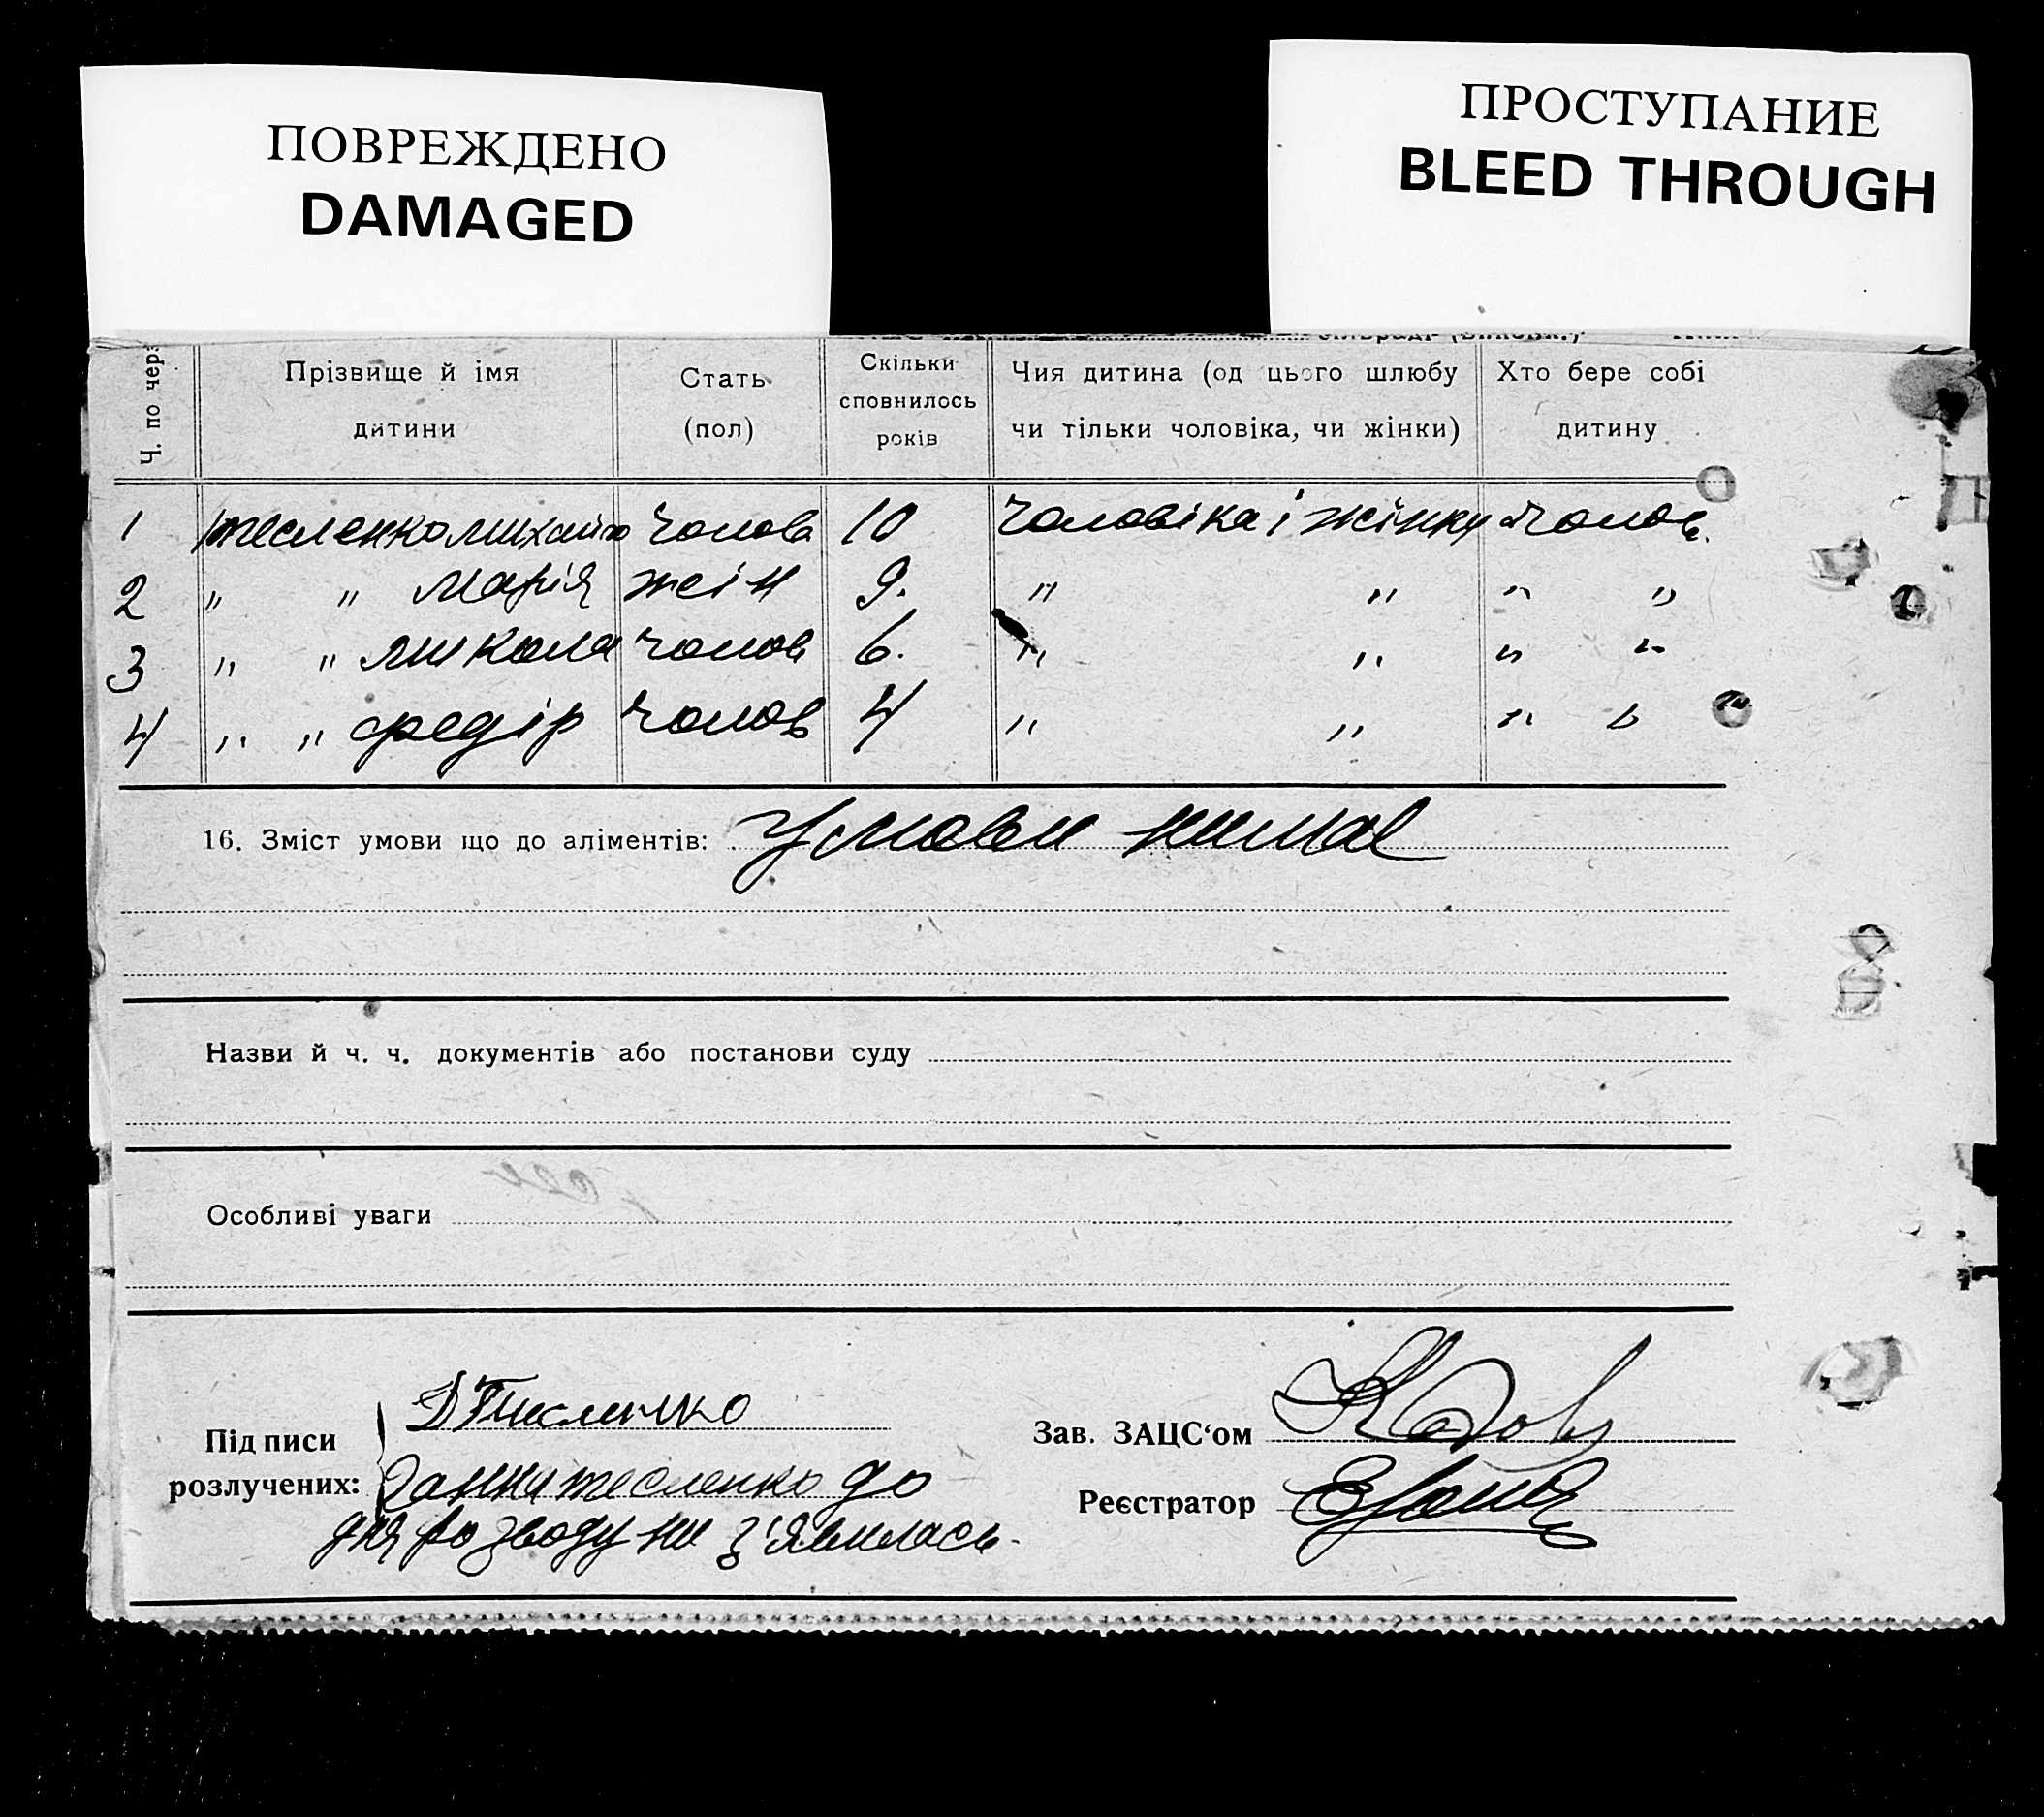 ПОВРЕЖДЕНО
DAMAGED
ПРОСТУПАНИЕ
BLEED THROUGH
Ч. по черз
Прізвище й імя дитини
Стать (пол)
Скільки сповнилось років
Чия дитина (од цього шлюбу чи тільки чоловіка, чи жінки)
Хто бере собі дитину
1 Тесленко Михайло чолов 10 чоловіка і жінки чолов.
2 " " Марія жін 9. " " " "
3 " " Микола чолов 6. " " " "
4 " " Федір чолов 4 " " " "
16. Зміст умови що до аліментів: Умови нима
Назви й ч. ч. документів або постанови суду
Особливі уваги
Підписи розлучених:
Д Тисленко
Ганна Тесленко до
дня розводу ни з'явилась.
Зав. ЗАЦС‘ом
Реєстратор